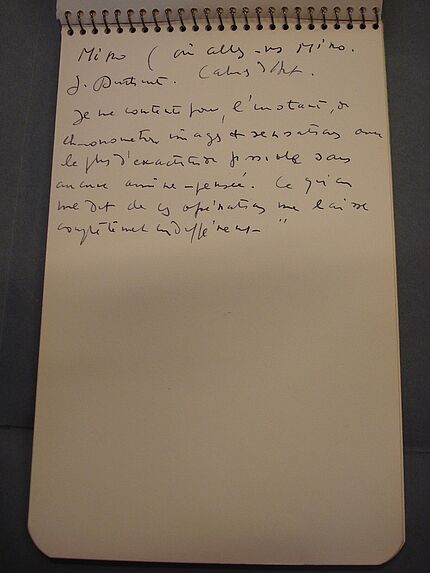 Miro ( où allez-vs Miro.
J. Dutbint. Cahiers d'Art.
Je me contente pour l'instant, de
chronométrer images et sensations avec
le plus d'exactitude possible sans
aucune arrière-pensée. Ce qu'on
me dit de ces opérations me laisse
complètement indifférent "